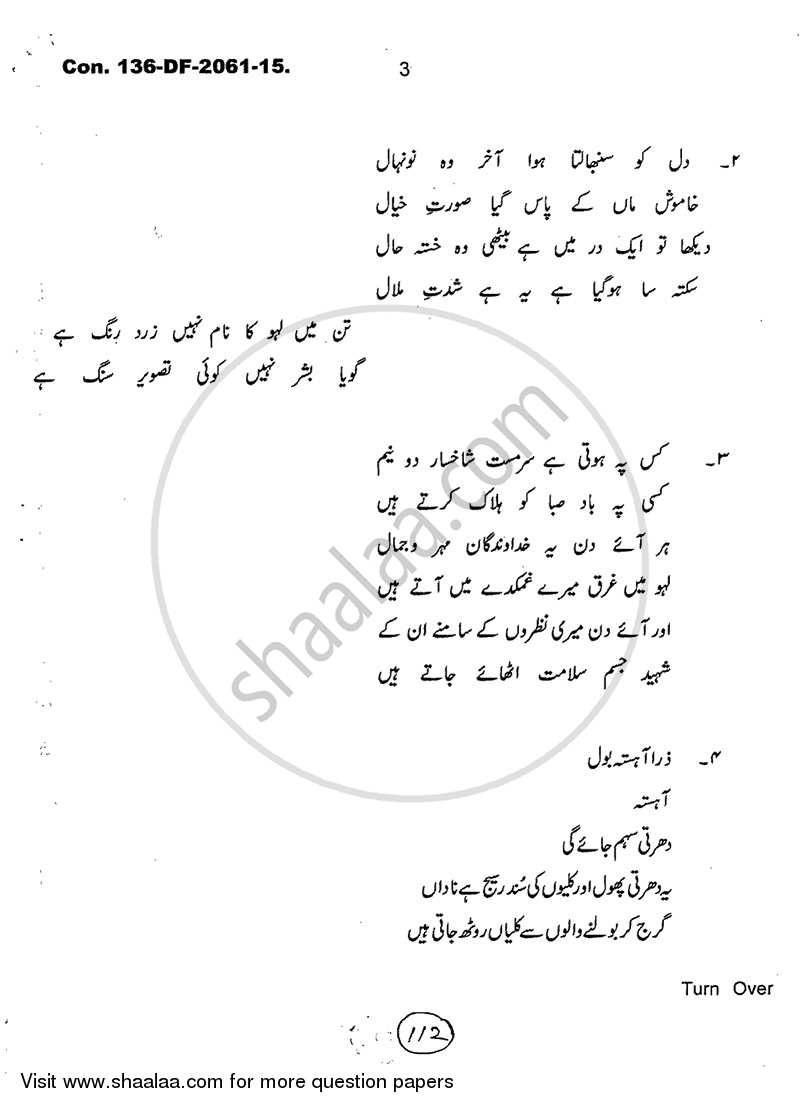 Con. 136-DF-2061-15.
3
۲۔ دل کو سنبھالتا ہوا آخر وہ نونہال
خاموش ماں کے پاس گیا صورتِ خیال
دیکھا تو ایک در میں ہے بیٹھی وہ خستہ حال
سکتہ سا ہوگیا ہے یہ ہے شدتِ ملال
تن میں لہو کا نام نہیں زرد رنگ ہے
گویا بشر نہیں کوئی تصویرِ سنگ ہے
۳۔ کس پہ ہوتی ہے سرمست شاخسار دو نیم
کسی پہ باد صبا کو ہلاک کرتے ہیں
ہر آئے دن یہ خداوندگان مہر وجمال
لہو میں غرق میرے غمکدے میں آتے ہیں
اور آئے دن میری نظروں کے سامنے ان کے
شہید جسم سلامت اٹھائے جاتے ہیں
۴۔ ذرا آہستہ بول
آہستہ
دھرتی سہم جائے گی
یہ دھرتی پھول اور کلیوں کی سُندر سیج ہے ناداں
گرج کر بولنے والوں سے کلیاں روٹھ جاتی ہیں
Turn Over
112
shaalaa.com
Visit www.shaalaa.com for more question papers